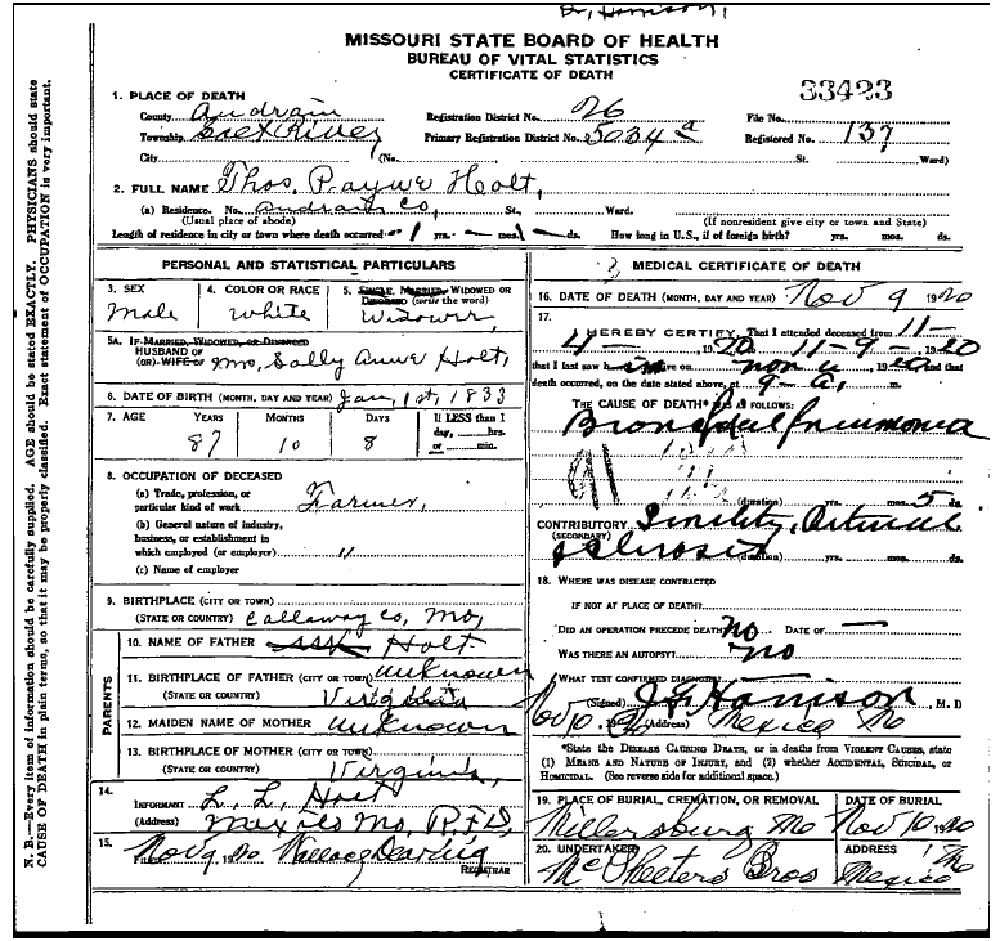 Dr. Harrison,
MISSOURI STATE BOARD OF HEALTH
BUREAU OF VITAL STATISTICS
CERTIFICATE OF DEATH
33423
1. PLACE OF DEATH
County Audrain Registration District No. 26 File No.
Township Salt River Primary Registration District No. 5034 a Registered No. 137
City (No. St. Ward)
2. FULL NAME Thos. Payne Holt,
(a) Residence. No. Audrain Co, St. Ward.
(Usual place of abode) (If nonresident give city or town and State)
Length of residence in city or town where death occurred 1 yrs. mos. ds. How long in U.S., if of foreign birth? yrs. mos. ds.
PERSONAL AND STATISTICAL PARTICULARS
3. SEX 4. COLOR OR RACE 5. SINGLE, MARRIED, WIDOWED OR
DIVORCED (write the word)
Male White Widower,
5A. IF MARRIED, WIDOWED, OR DIVORCED
HUSBAND OF
(OR) WIFE OF Mrs, Sally Anne Holt,
6. DATE OF BIRTH (MONTH, DAY AND YEAR) Jan, 1st, 1833
7. AGE YEARS MONTHS DAYS If LESS than 1
day, hrs.
or min.
87 10 8
8. OCCUPATION OF DECEASED
(a) Trade, profession, or
particular kind of work Farmer,
(b) General nature of industry,
business, or establishment in
which employed (or employer) "
(c) Name of employer
9. BIRTHPLACE (CITY OR TOWN)
(STATE OR COUNTRY) Callaway Co, Mo,
PARENTS
10. NAME OF FATHER Holt
11. BIRTHPLACE OF FATHER (CITY OR TOWN) Unknown
(STATE OR COUNTRY) Virginia
12. MAIDEN NAME OF MOTHER Unknown
13. BIRTHPLACE OF MOTHER (CITY OR TOWN)
(STATE OR COUNTRY) Virginia,
14.
INFORMANT L. L. Holt
(Address) Mexico Mo, R.F.D,
15.
FILED Nov 9, 1920 Wallace Dearing
REGISTRAR
MEDICAL CERTIFICATE OF DEATH
16. DATE OF DEATH (MONTH, DAY AND YEAR) Nov 9 1920
17.
I HEREBY CERTIFY, That I attended deceased from 11-
4 - , 1920 to 11-9- 1920
that I last saw h im alive on , 1920 and that
death occurred, on the date stated above, at 9- a, m.
THE CAUSE OF DEATH* WAS AS FOLLOWS:
Bronchial Pneumonia
91
(duration) yrs. mos. 5 ds.
CONTRIBUTORY Senility, Arterial
(SECONDARY)
sclerosis (duration) yrs. mos. ds.
18. WHERE WAS DISEASE CONTRACTED
IF NOT AT PLACE OF DEATH?
DID AN OPERATION PRECEDE DEATH? No DATE OF —
WAS THERE AN AUTOPSY? no
WHAT TEST CONFIRMED DIAGNOSIS?
(Signed) Harrison, M. D
Nov 10, 1920 (Address) Mexico Mo
*State the DISEASE CAUSING DEATH, or in deaths from VIOLENT CAUSES, state
(1) MEANS AND NATURE OF INJURY, and (2) whether ACCIDENTAL, SUICIDAL, or
HOMICIDAL. (See reverse side for additional space.)
19. PLACE OF BURIAL, CREMATION, OR REMOVAL DATE OF BURIAL
Millersburg Mo Nov 10 1920
20. UNDERTAKER ADDRESS
McPheeters Bros Mexico Mo
N. B.—Every item of information should be carefully supplied. AGE should be stated EXACTLY. PHYSICIANS should state
CAUSE OF DEATH in plain terms, so that it may be properly classified. Exact statement of OCCUPATION is very important.